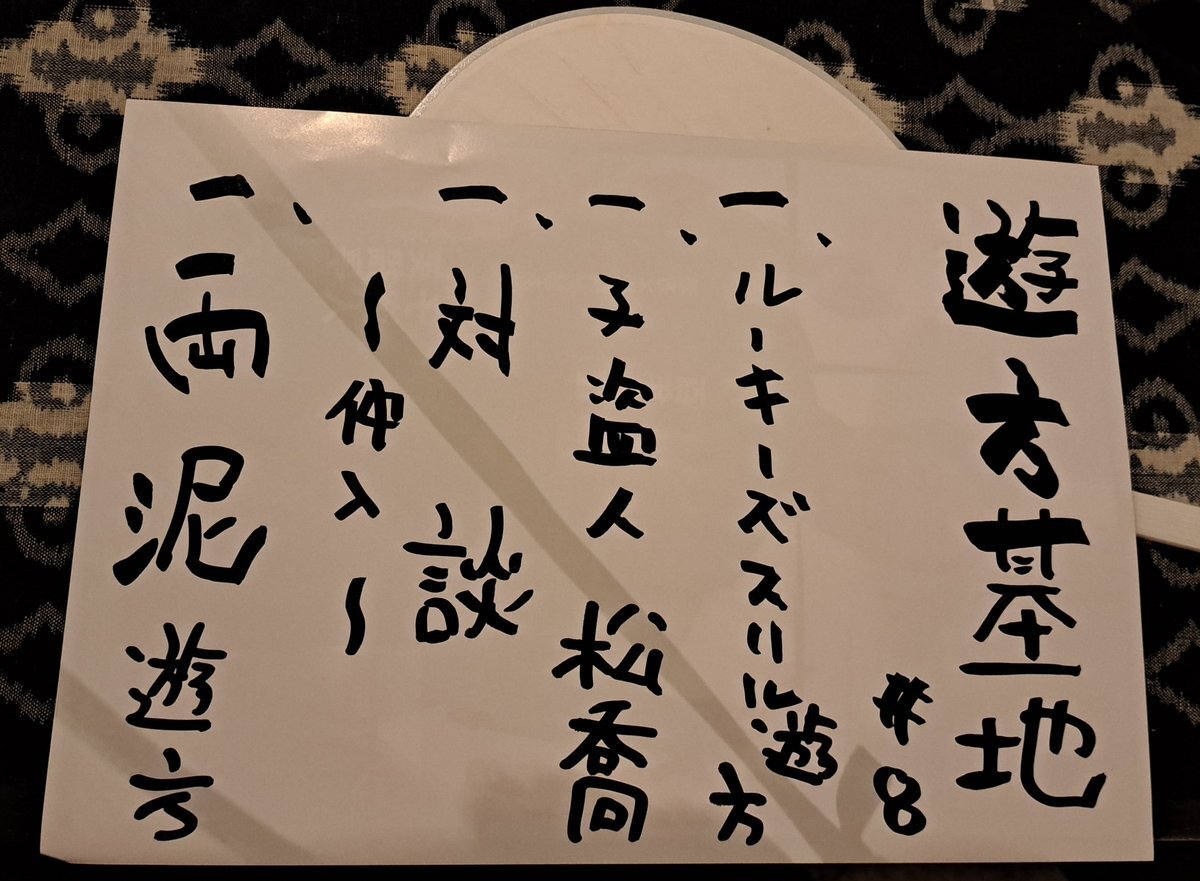 遊方基地
#8
一、ルーキーズスリル 遊方
一、子盗人 松喬
一、対談
〜仲入〜
一、両泥 遊方